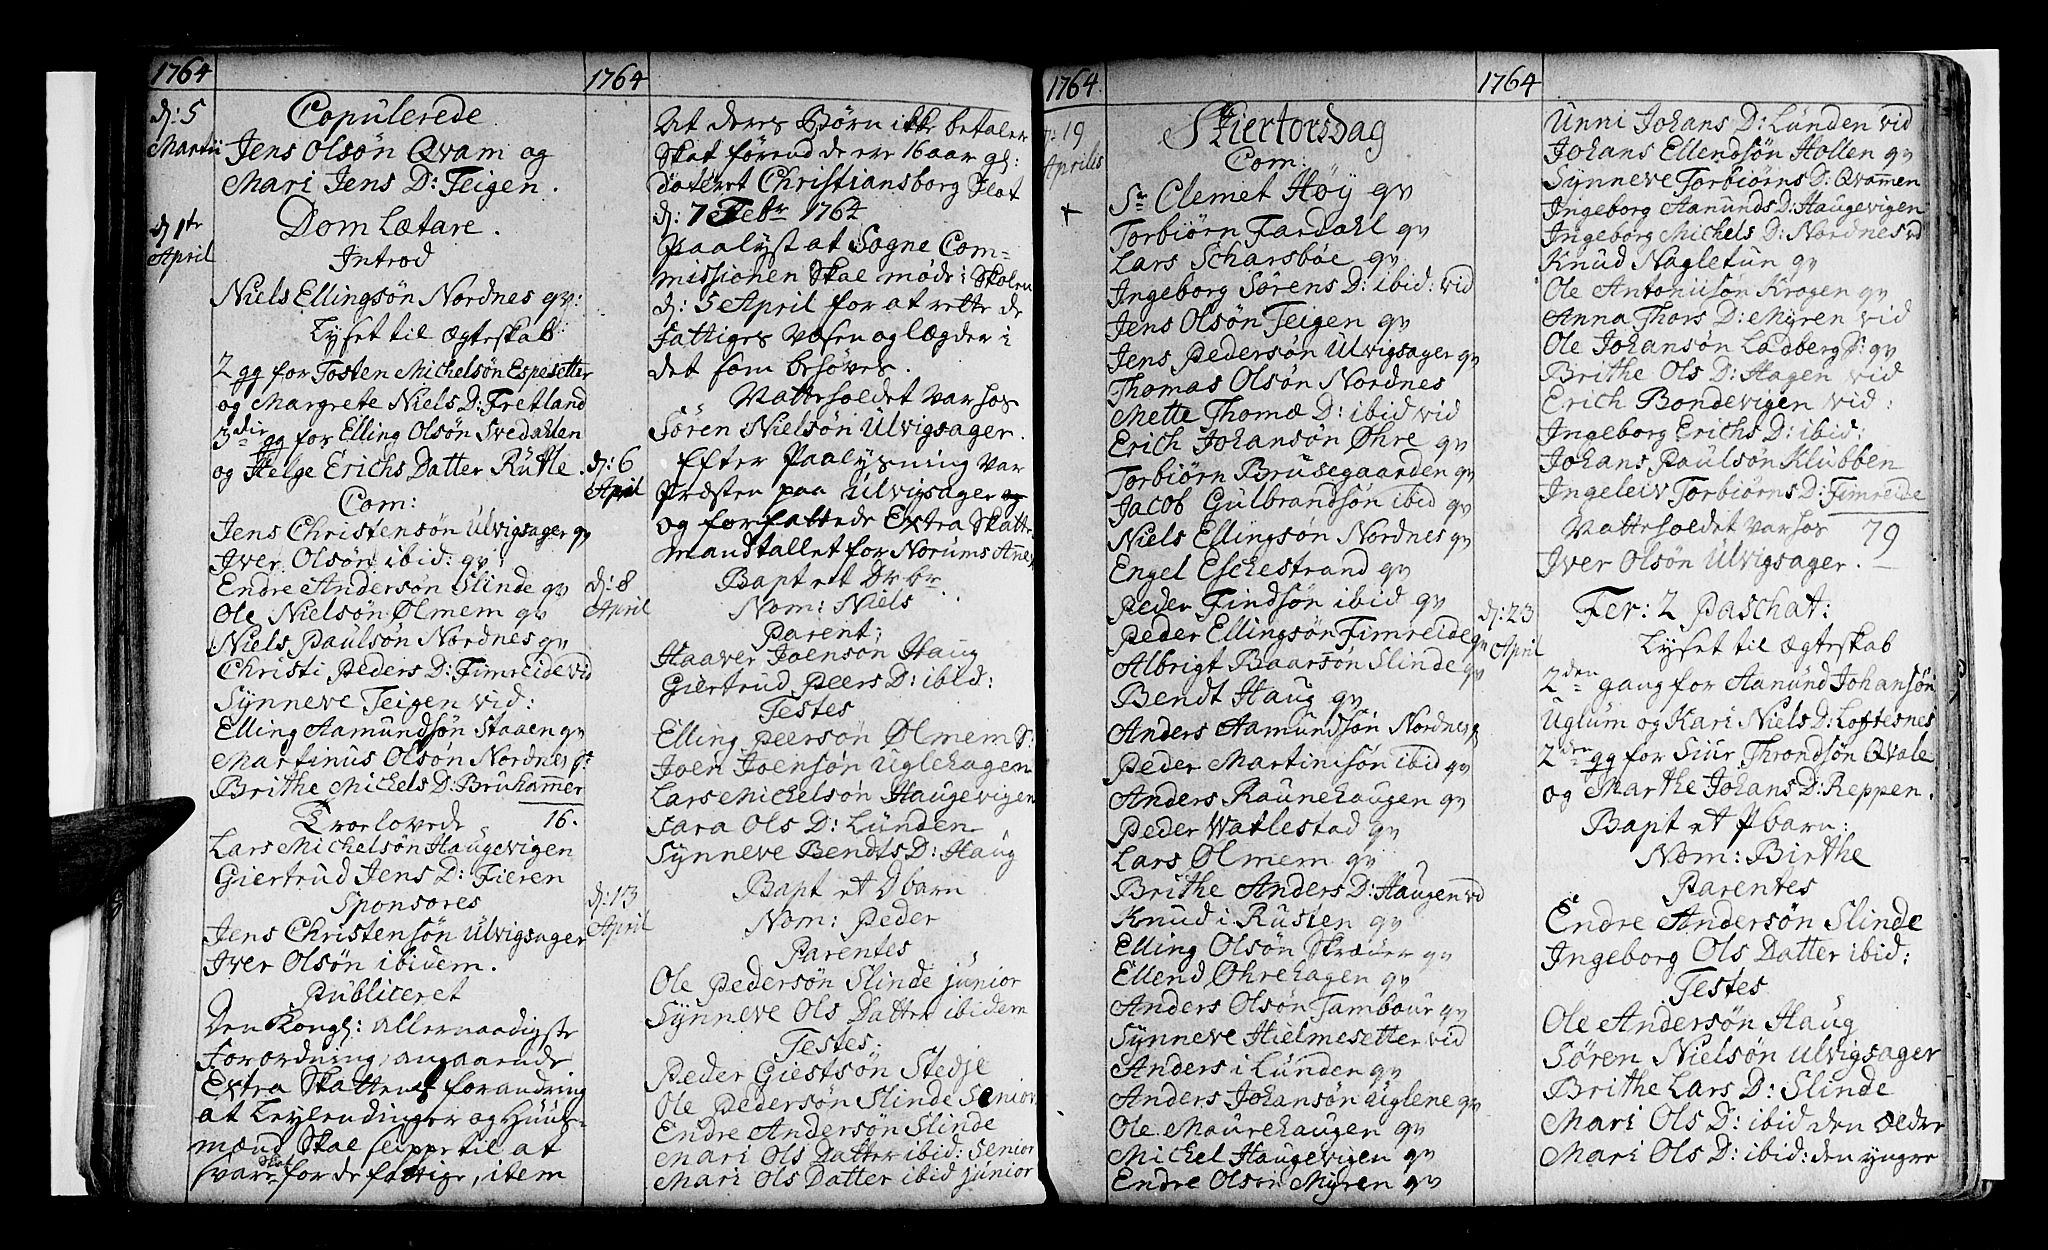 1764
d: 5
Martii
Copulerede
Jens Olsøn Qvam og
Mari Jens D: Teigen.
d 1te
April
Dom Lætare.
Introd
Niels Ellingsøn Nordnes qv:
Lyset til Ægteskab:
2 gg for Tosten Michelsøn Espesetter
og Margrete Niels D: Fretland
3die gg for Elling Olsøn Svedahlen
og Helge Erichs Datter Rutle.
Com:
Jens Christensøn Ulvigsager qv
Iver Olsøn ibid: qv
Endre Andersøn Slinde qv
Ole Nielsøn Ølmem qv
Niels Paulsøn Nordnes qv
Christi Peders D: Fimreide vid
Synneve Teigen vid:
Elling Aamundsøn Staaen qv
Martinus Olsøn Nordnes
Brithe Michels D: Bruhammer
16.
Trolovede
Lars Michelsøn Haugevigen
Giertrud Jens D: Fieren
Sponsores
Jens Christensøn Ulvigsager
Iver Olsøn ibidem.
Publiceret
Den Kongl: allernaadigste
Forordning, angaaende
Extra Skattens forandring
at Leylendinger og Huus-
mænd Skal slippe til at
svare Skat for de fattige, item
1764
At deres Børn ikke betaler
Skat førend de ere 16 aar gl:
dateret Christiansborg Slot
d: 7 Febr 1764
Paalyst at Sogne Com-
missionen Skal møde i Skolen
d: 5 April for at rette de
Fattiges Væsen og lægder i
det som behøves.
Vatteholdet var hos
Søren Nielsøn Ulvigsager.
d: 6
April
Efter Paalysning var
Præsten paa Ulvigsager og
og forfattede Extra Skatte
Mandtallet for Norums Anex
d: 8
April
Bapt ett Drbr.
Nom: Niels
Parent:
Haaver Joensøn Haug
Giertrud Peers D: ibid:
Testes
Elling Peersøn Ølmem S:
Joen Joensøn Uglehagen
Lars Michelsøn Haugevigen
Sara Ols D: Lunden
Synneve Bendts D: Haug
d: 13
April
Bapt et Dbarn
Nom: Peder
Parentes
Ole Pedersøn Slinde junior
Synneve Ols Datter ibidem
Testes.
Peder Giestsøn Stedje
Ole Pedersøn Slinde Senior
Endre Andersøn Slinde
Mari Ols Datter ibid: Senior
Mari Ols Datter ibid junior
1764
d: 19
Aprilis
+
Skiertorsdag
Com:
Sr Clemet Høÿ qv
Torbiørn Fardahl qv
Lars Scharsbøe qv
Ingeborg Sørens D: ibid: vid
Jens Olsøn Teigen qv
Jens Pedersøn Ulvigsager qv
Thomas Olsøn Nordnes
Mette Thomæ D: ibid vid
Erich Johansøn Øhre qv
Torbiørn Brusegaarden qv
Jacob Gulbrandsøn ibid qv
Niels Ellingsøn Nordnes qv
Engel Eschestrand qv
Peder Findsøn ibid qv
Peder Ellingsøn Fimreide qv
Albrigt Baarsøn Slinde qv
Bendt Haug qv
Anders Aamundsøn Nordnes
Peder Martinisøn ibid qv
Anders Raunehaugen qv
Peder Watlestad qv
Lars Ølmem qv
Brithe Anders D: Haugen vid
Knud i Rusten qv
Elling Olsøn Skræer qv
Ellend Øhrehagen qv
Anders Olsøn Tambour qv
Synneve Hielmesetter vid
Anders i Lunden qv
Anders Johansøn Uglene qv
Ole Maurehaugen qv
Michel Haugevigen qv
Endre Olsøn Myren qv
1764
Unni Johans D: Lunden vid
Johans Ellendsøn Hollen qv
Synneve Torbiørns D: Qvammen
Ingeborg Aamunds D: Haugevigen
Ingeborg Michels D: Nordnes vd
Knud Nagletun qv
Ole Antoniisøn Krogen qv
Anna Thors D: Myren vid
Ole Johansøn Ladberg S: qv
Brithe Ols D: Hagen vid
Erich Bondevigen vid:
Ingeborg Erichs D: ibid:
Johans Paulsøn Klubben
Ingeleiv Torbiørns D: Fimreide
79
Vatteholdet var hos
Iver Olsøn Ulvigsager.
d: 23
April
Fer: 2 Paschat:
Lyset til Ægteskab
2den gang for Aamund Johansøn
Uglum og Kari Niels D: Loftesnes
2den gg for Siur Throndsøn Qvale
og Marthe Johans D: Reppen.
Bapt et Pbarn:
Nom: Birthe
Parentes
Endre Andersøn Slinde
Ingeborg Ols Datter ibid:
Testes
Ole Andersøn Haug
Søren Nielsøn Ulvigsager
Brithe Lars D: Slinde
Mari Ols D: ibid den Ældre
Mari Ols D: ibid: den yngre